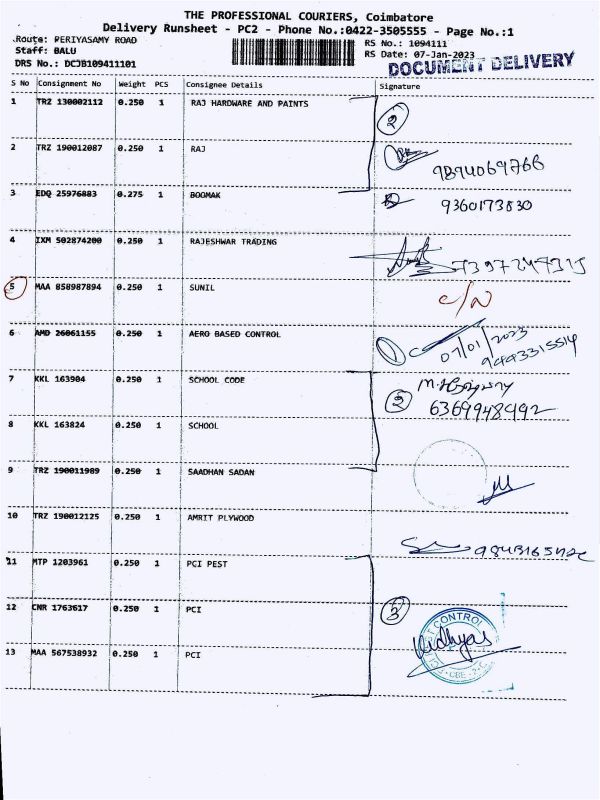 THE PROFESSIONAL COURIERS, Coimbatore
Delivery Runsheet - PC2 - Phone No.:0422-3505555 - Page No.:1
Route: PERIYASAMY ROAD
Staff: BALU
DRS No.: DCJB109411101
RS No.: 1094111
RS Date: 07-Jan-2023
DOCUMENT DELIVERY
S No Consignment No Weight PCS Consignee Details Signature
1 TRZ 130002112 0.250 1 RAJ HARDWARE AND PAINTS 2
2 TRZ 190012087 0.250 1 RAJ 9894069766
3 EDQ 25976883 0.275 1 BOOMAK 9360173830
4 IXM 502874200 0.250 1 RAJESHWAR TRADING
5 MAA 858987894 0.250 1 SUNIL C/N
6 AMD 26061155 0.250 1 AERO BASED CONTROL 1 07/01/2023
9443315514
7 KKL 163904 0.250 1 SCHOOL CODE 2
6369948492
8 KKL 163824 0.250 1 SCHOOL
9 TRZ 190011989 0.250 1 SAADHAN SADAN
10 TRZ 190012125 0.250 1 AMRIT PLYWOOD
11 MTP 1203961 0.250 1 PCI PEST
12 CNR 1763617 0.250 1 PCI 3
CONTROL
Vidhya
CBE
13 MAA 567538932 0.250 1 PCI